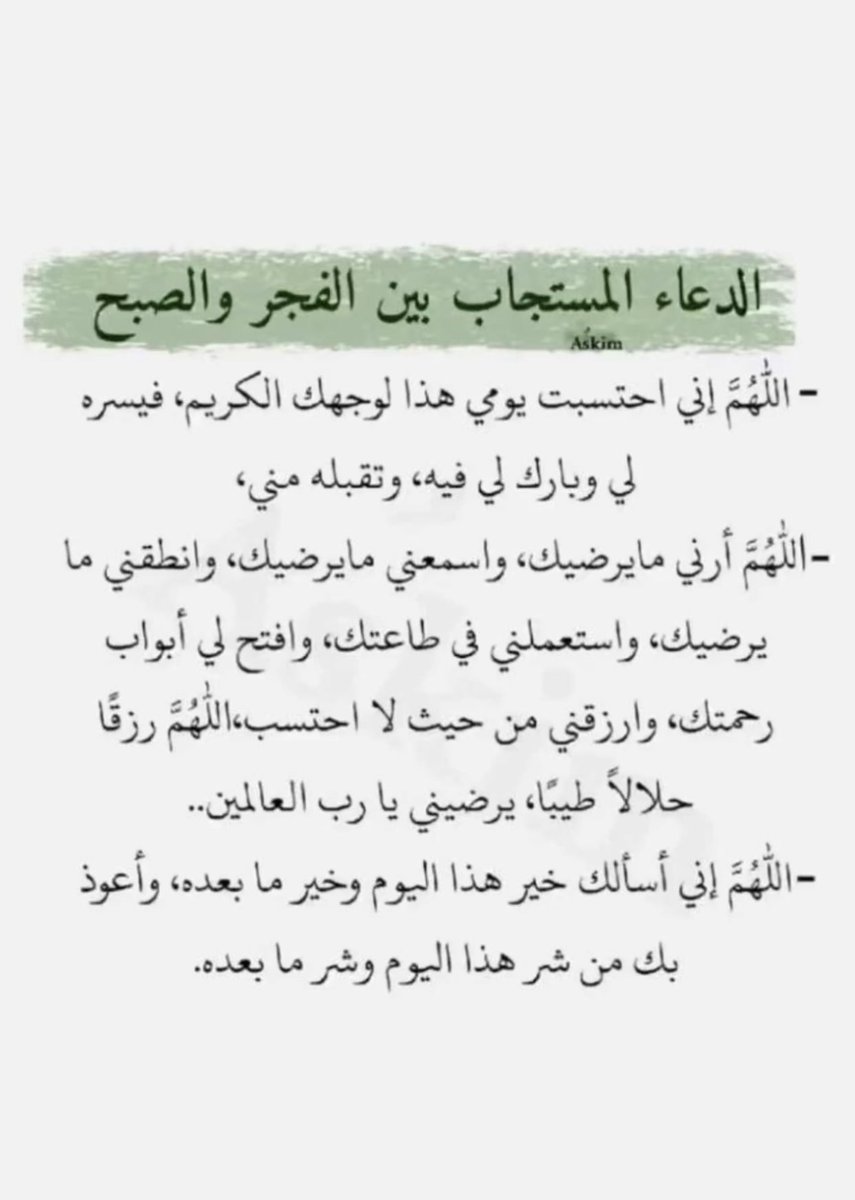 الدعاء المستجاب بين الفجر والصبح
Askim
- اللّٰهُمَّ إني احتسبت يومي هذا لوجهك الكريم، فيسره
لي وبارك لي فيه، وتقبله مني،
-اللّٰهُمَّ أرني مايرضيك، واسمعني مايرضيك، وانطقني ما
يرضيك، واستعملني في طاعتك، وافتح لي أبواب
رحمتك، وارزقني من حيث لا احتسب،اللّٰهُمَّ رزقًا
حلالاً طيبًا، يرضيني يا رب العالمين..
-اللّٰهُمَّ إني أسألك خير هذا اليوم وخير ما بعده، وأعوذ
بك من شر هذا اليوم وشر ما بعده.
Askim